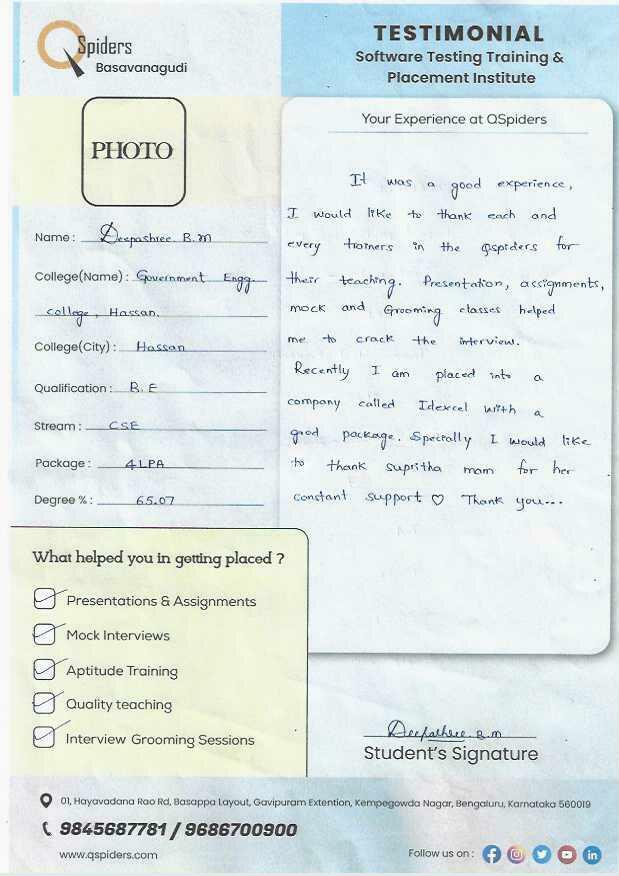 QSpiders
Basavanagudi
TESTIMONIAL
Software Testing Training &
Placement Institute
PHOTO
Name : Deepashree. B.M
College(Name) : Government Engg.
college, Hassan.
College(City) : Hassan
Qualification : B.E
Stream : CSE
Package : 4LPA
Degree % : 65.07
Your Experience at QSpiders
It was a good experience,
I would like to thank each and
every trainers in the Qspiders for
their teaching. Presentation, assignments,
mock and Grooming classes helped
me to crack the interview.
Recently I am placed into a
company called Idexcel with a
good package. Specially I would like
to thank supritha mam for her
constant support ♡ Thank you...
What helped you in getting placed ?
Presentations & Assignments
Mock Interviews
Aptitude Training
Quality teaching
Interview Grooming Sessions
Deepashree. B.M
Student's Signature
01, Hayavadana Rao Rd, Basappa Layout, Gavipuram Extention, Kempegowda Nagar, Bengaluru, Karnataka 560019
9845687781 / 9686700900
www.qspiders.com
Follow us on :